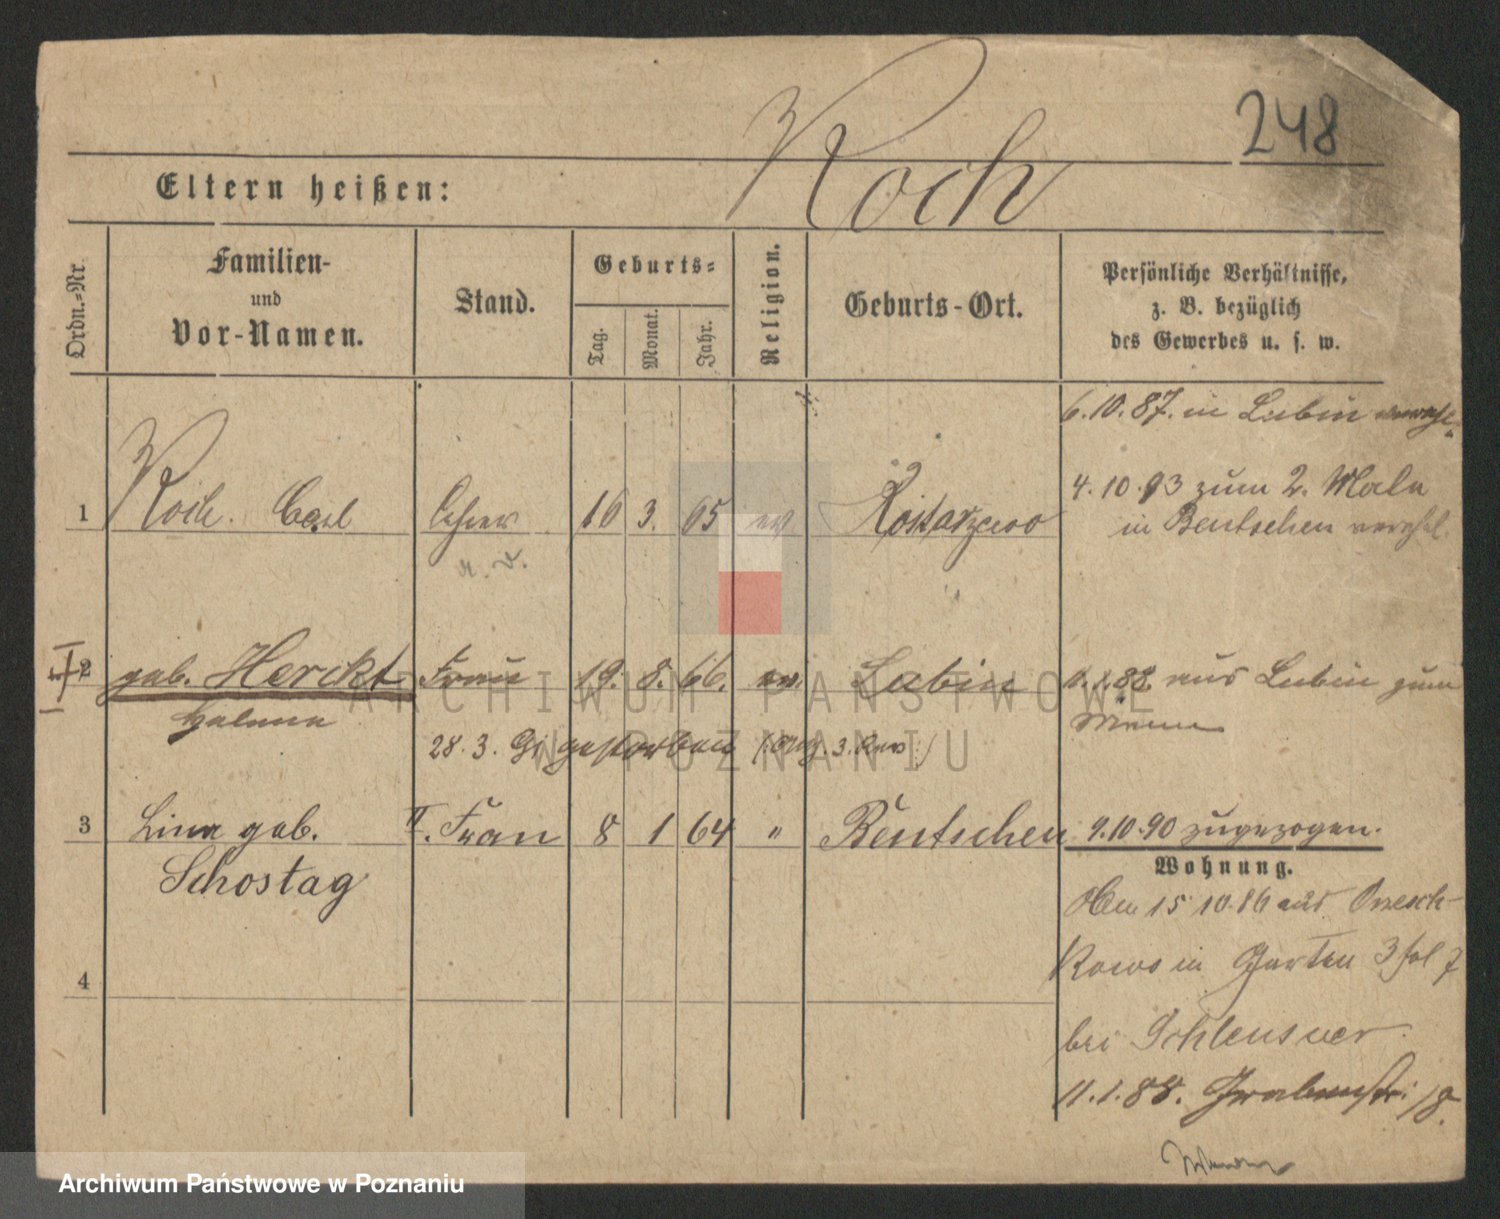 248
Koch
Eltern heißen:
Ordn.=Nr.
Familien-
und
Vor-Namen.
Stand.
Geburts=
Tag.
Monat.
Jahr.
Religion.
Geburts-Ort.
Persönliche Verhältnisse,
z. B. bezüglich
des Gewerbes u. s. w.
6.10.87. in Lubin verehl.
1 Koch. Carl Lehrer 16 3. 65 ev Rostarzewo
4.10.93 zum 2. Male
in Bentschen verehl.
2 geb. Herckt Frau 19. 8. 66. ev. Lubin
Helene
11.1.88. aus Lubin zum
Manne
28. 3. 91 gestorben
3 Lina geb. II. Frau 8 1 64 " Bentschen
Schostag
9.10.90 zugezogen.
Wohnung.
15 10.86 aus Orzesch-
kowo in Garten 3 fol 7
bei Schleusner.
4
11.1.88. Grabenstr. 18.
ARCHIWUM PAŃSTWOWE
W POZNANIU
Archiwum Państwowe w Poznaniu